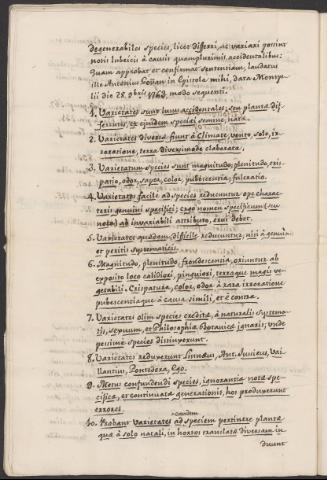 degenerabiles species, licet differri, ac variari possint
novis subinde à causis quampluri​mis accidentalibus:
Quam approbat et confirmat sententiam, laudatus
ille Antonius Goüan in Epistola mihi, data Monspe-
lii die 28 9bris 1763, modo sequenti.
1. Varietates sunt lusus accidentales, seu plantæ dif-
ferentes, ex ejusdem speciei semine, natæ.
2. Varietates diversæ fiunt à Climate, vento, solo, ir-
roratione, terra diversimode elaborata.
3. Varietatum species sunt magnitudo, plenitudo, cris-
patio, odor, sapor, color, pubescentia, fulcratio.
4. Varietates facile ad species reducuntur ope charac-
teris genuini specifici; ergo nomen specificum (seu
nota) ab invariabili attributo, erui debet.
5. Varietates quædam, difficile reducuntur, nisi à genuinis
et peritis systematicis.
6. Magnitudo, plenitudo, frondescentia, oriuntur ab
exposito loco calidiori, pinguiori, terraque magis ve-
getabili. Crispatura, color, odor à rara irroratione
pubescentiaque à causa simili, et è contra.
7. Varietates olim species creditæ, à naturali Systema-
tis, sexuum, et Philosophia Botanica ignaris; unde
pessime species distinxerunt.
8. Varietates reduxerunt Linnæus, Ant. Jussieus, Vai-
llantius, Pontedera, Ego.
9. Motus confundendi species, ignorantia notæ spe-
cificæ, et continuatæ generationis, hos produxerunt
errores.
10. Probant varietates ad speciem eandem pertinere plantæ
quæ à solo natali, in hortos translatæ diversam in-
duunt